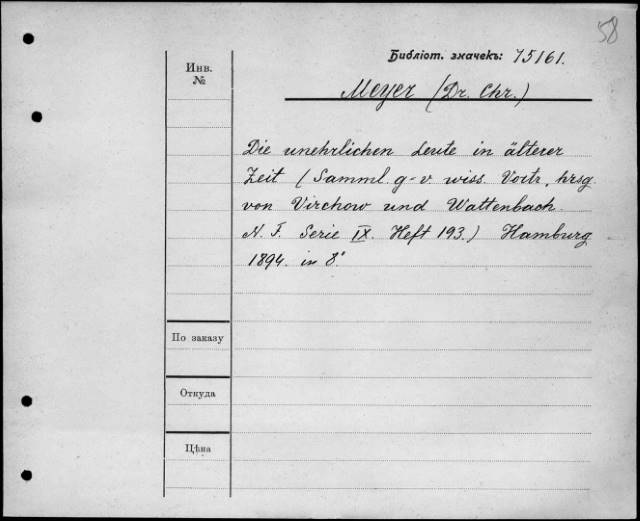 58
Библіот. значекъ: 75161.
Инв.
№
Meyer (Dr. Chr.)
Die unehrlichen Leute in älterer
Zeit (Samml. g-v. wiss. Vortr. hrsg.
von Virchow und Wattenbach.
N. F. Serie IX. Heft 193.) Hamburg
1894. in 8°.
По заказу
Откуда
Цѣна